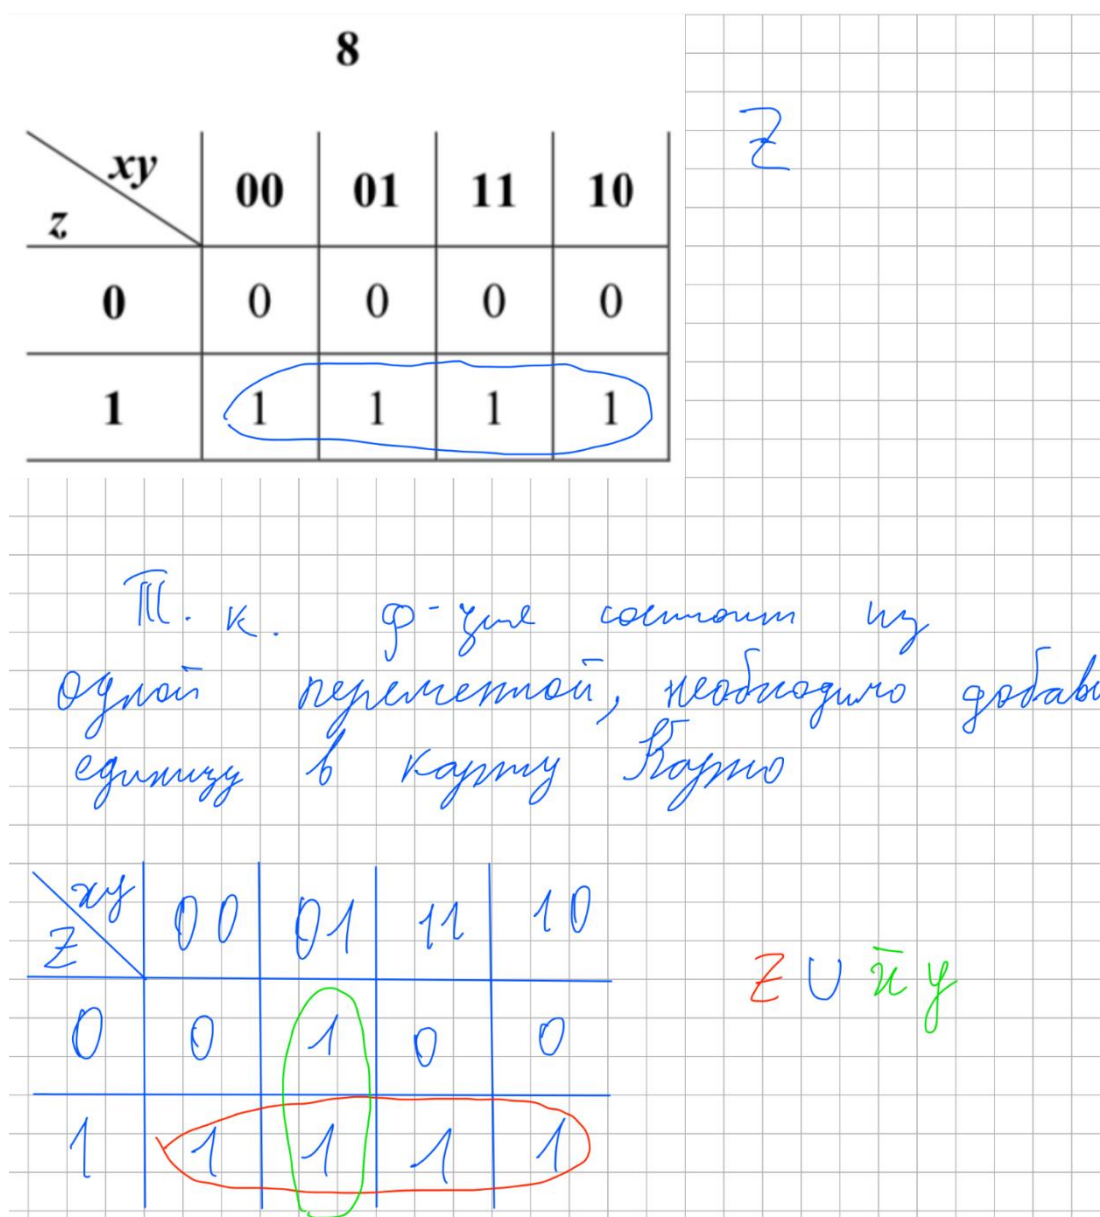 8
xy
z 00 01 11 10
0 0 0 0 0
1 1 1 1 1
Z
Т. к. ф-ция состоит из
одной переменной, необходимо добави
единицу в карту Карно
xy
Z 00 01 11 10
0 0 1 0 0
1 1 1 1 1
Z ∪ x̄ y